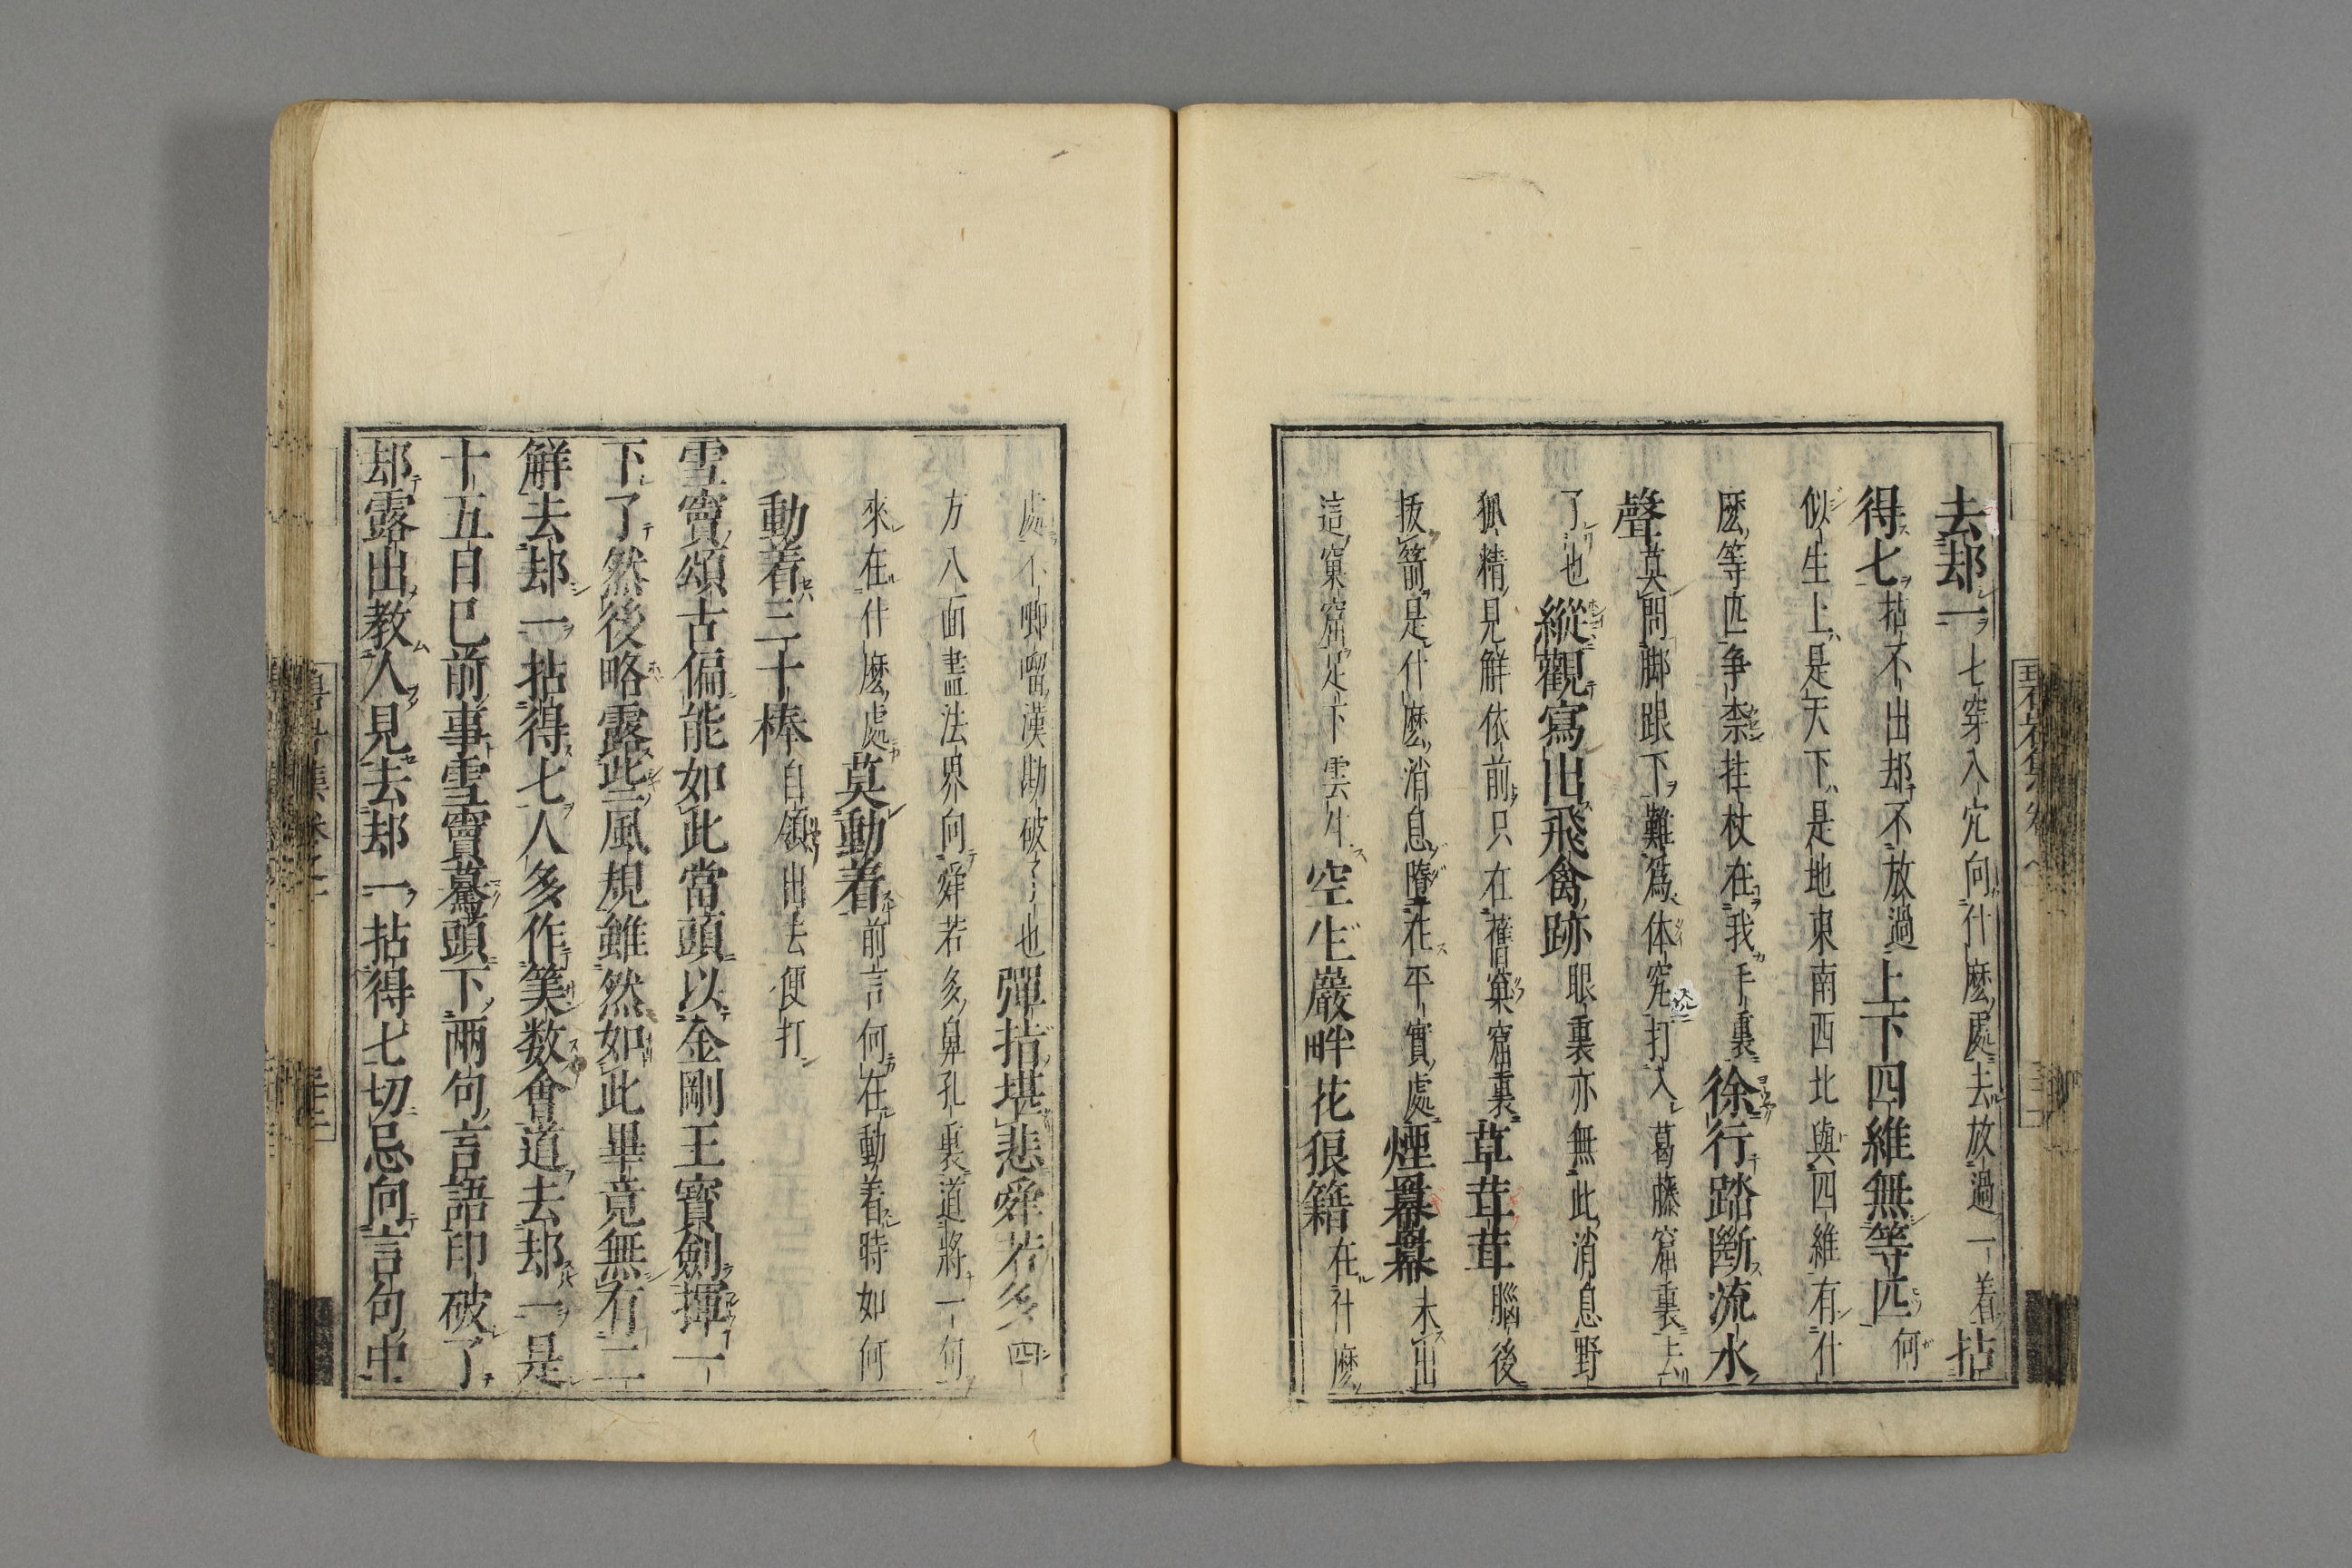 去却一七穿八穴向什麼處去放過一着拈
得七拈不出却不放過上下四維無等匹何
似生上是天下是地東南西北與四維有什
麼等匹争柰拄杖在我手裏徐行踏斷流水
聲莫問脚跟下難爲体究打入葛藤窟裏去
了也縱觀寫出飛禽跡眼裏亦無此消息野
狐精見解依前只在舊窠窟裏草茸茸腦後
拔箭是什麼消息墮在平實處煙羃羃未出
這窠窟足下雲生空生巖畔花狼籍在什麼
處不唧𠺕漢勘破了也彈指堪悲舜若多四
方八面盡法界向舜若多鼻孔裏道將一句
來在什麼處莫動着前言何在動着時如何
動着三十棒自領出去便打
雪竇頌古偏能如此當頭以金剛王寶劍揮一
下了然後略露些風規雖然如此畢竟無有二
解去却一拈得七人多作筭数會道去却一是
十五日已前事雪竇驀頭下兩句言語印破了
却露出教人見去却一拈得七切忌向言句中